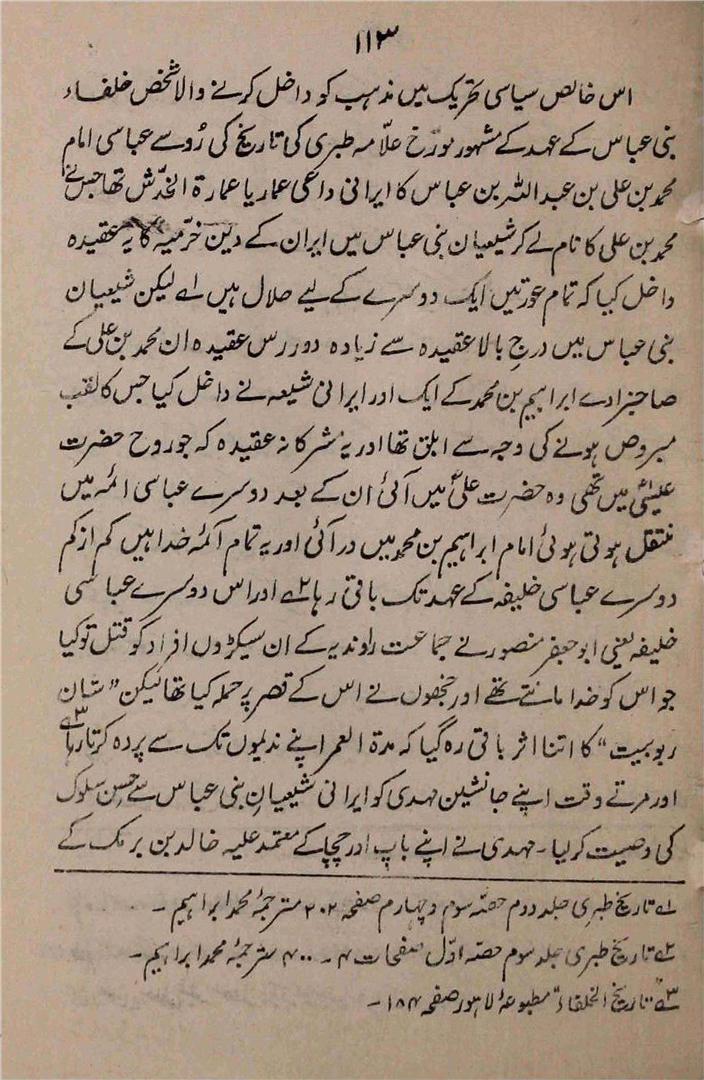 ۱۱۳
اس خالص سیاسی تحریک میں مذہب کو داخل کرنے والا شخص خلفاء
بنی عباس کے عہد کے مشہور مورّخ علّامہ طبری کی تاریخ کی رُو سے عباسی امام
محمد بن علی بن عبداللہ بن عباس کا ایرانی داعی عمار یا عمارۃ الخدّش تھا جس نے
محمد بن علی کا نام لے کر شیعیان بنی عباس میں ایران کے دین خرّمیہ کا یہ عقیدہ
داخل کیا کہ تمام عورتیں ایک دوسرے کے لیے حلال ہیں ۱ے لیکن شیعیان
بنی عباس میں درج بالا عقیدہ سے زیادہ دور رس عقیدہ ان محمد بن علی کے
صاحبزادے ابراہیم بن محمد کے ایک اور ایرانی شیعہ نے داخل کیا جس کا لقب
مبروص ہونے کی وجہ سے ابلق تھا اور یہ مشرکانہ عقیدہ کہ جو روح حضرت
عیسیٰؑ میں تھی وہ حضرت علیؑ میں آئی ان کے بعد دوسرے عباسی ائمہ میں
منتقل ہوتی ہوئی امام ابراہیم بن محمد میں در آئی اور یہ تمام آئمہ خدا ہیں کم از کم
دوسرے عباسی خلیفہ کے عہد تک باقی رہا ۲ے اور اس دوسرے عباسی
خلیفہ یعنی ابو جعفر منصور نے جماعت راوندیہ کے ان سیکڑوں افراد کو قتل تو کیا
جو اس کو خدا مانتے تھے اور جنھوں نے اس کے قصر پر حملہ کیا تھا لیکن ”شان
ربوبیت“ کا اتنا اثر باقی رہ گیا کہ مدۃ العمر اپنے ندیموں تک سے پردہ کرتا رہا ۳ے
اور مرتے وقت اپنے جانشین مہدی کو ایرانی شیعیانِ بنی عباس سے حسنِ سلوک
کی وصیت کر لیا۔ مہدی نے اپنے باپ اور چچا کے معتمد علیہ خالد بن برمک کے
۱ے تاریخ طبری جلد دوم حصّہ سوم و چہارم صفحہ ۲۰۲ مترجمۂ محمد ابراہیم ۔
۲ے تاریخ طبری جلد سوم حصّہ اوّل صفحات ۴ ۔ ۴۰۰ مترجمۂ محمد ابراہیم ۔
۳ے ”تاریخ الخلفاء“ مطبوعۂ لاہور صفحہ ۱۸۴ ۔